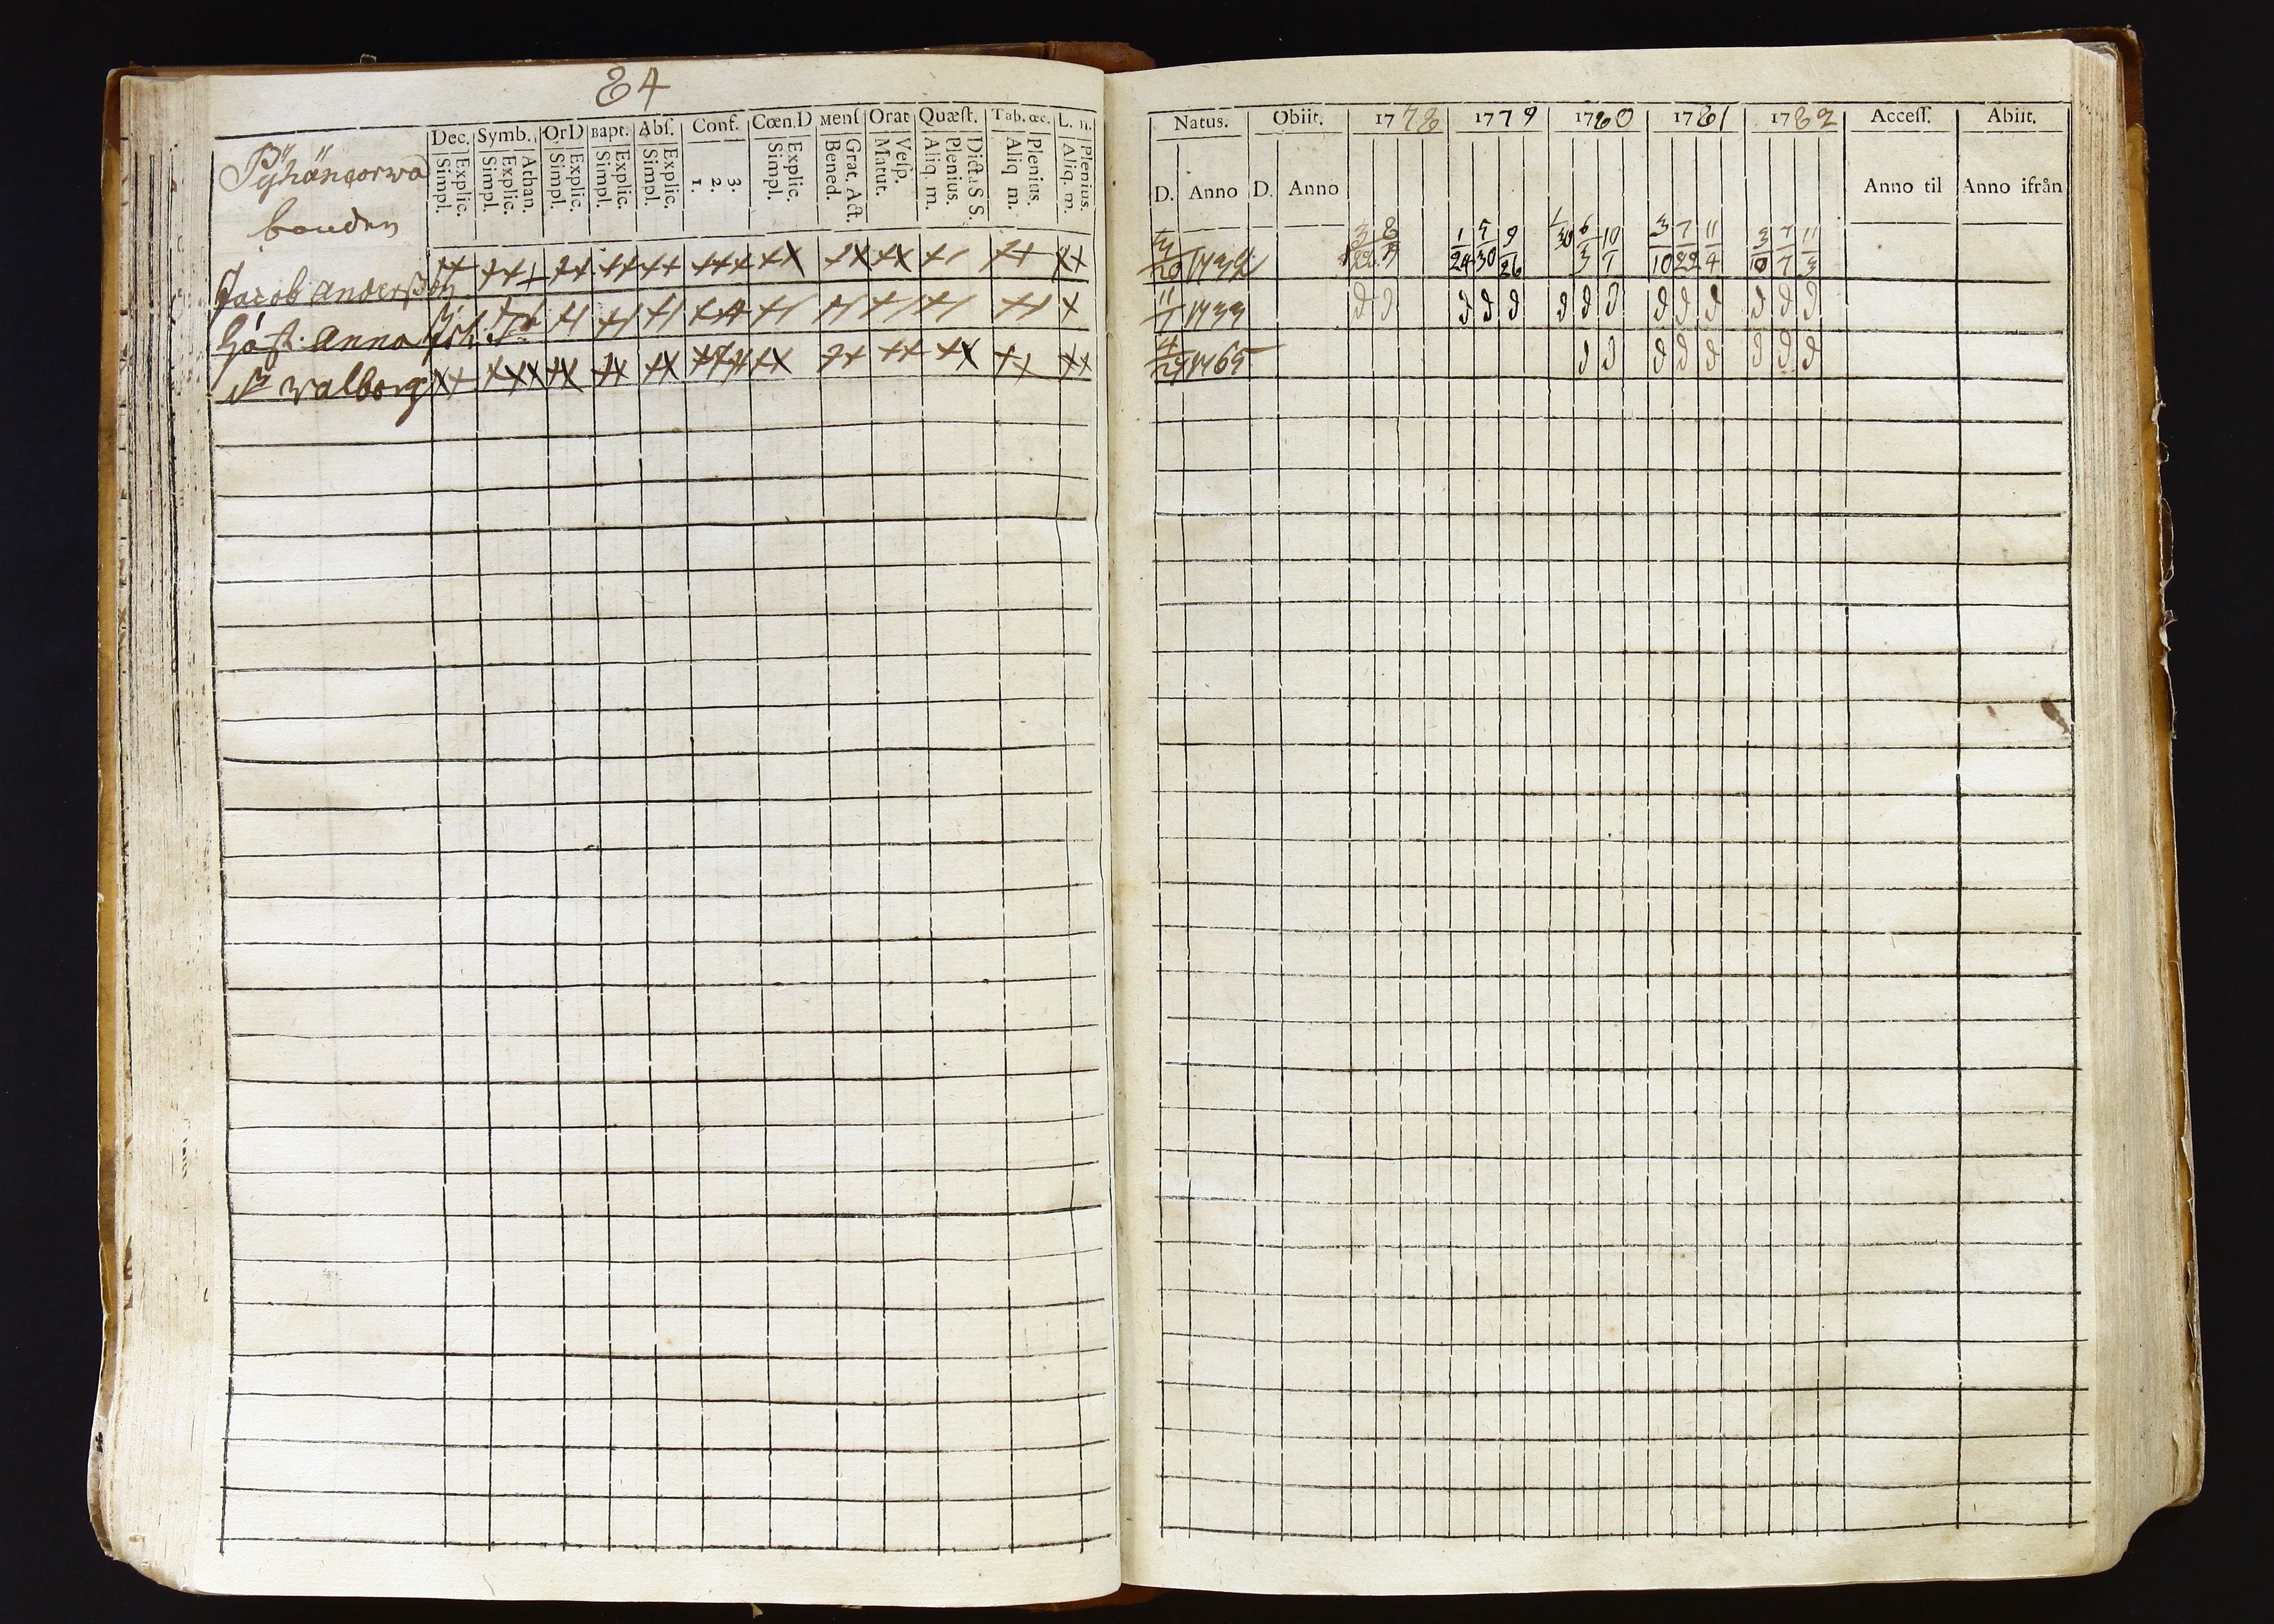 84
Dec. Symb. Or D Bapt. Abſ. Conf. Cœn. D Menſ Orat Quæſt. Tab. œc. L. n.
Simpl. Explic. Simpl. Explic. Athan. Simpl. Explic. Simpl. Explic. Simpl. Explic. 1. 2. 3. Simpl. Explic. Bened. Grat. Act. Matut. Veſp. Aliq. m. Plenius. Dicta S S. Aliq. m. Plenius. Aliq. m. Plenius.
Pÿhäncorwa
bonden
Jacob Andersson
Hust. Anna
Dr Walborg
Natus. Obiit. 1778 1779 1780 1781 1782 Acceſſ. Abiit.
D. Anno D. Anno Anno til Anno ifrån
3 8 1 5 9 6 10 3 7 11 3 7 11
22 24 30 26 30 3 1 10 22 4 10 7 3
11 1733
1765